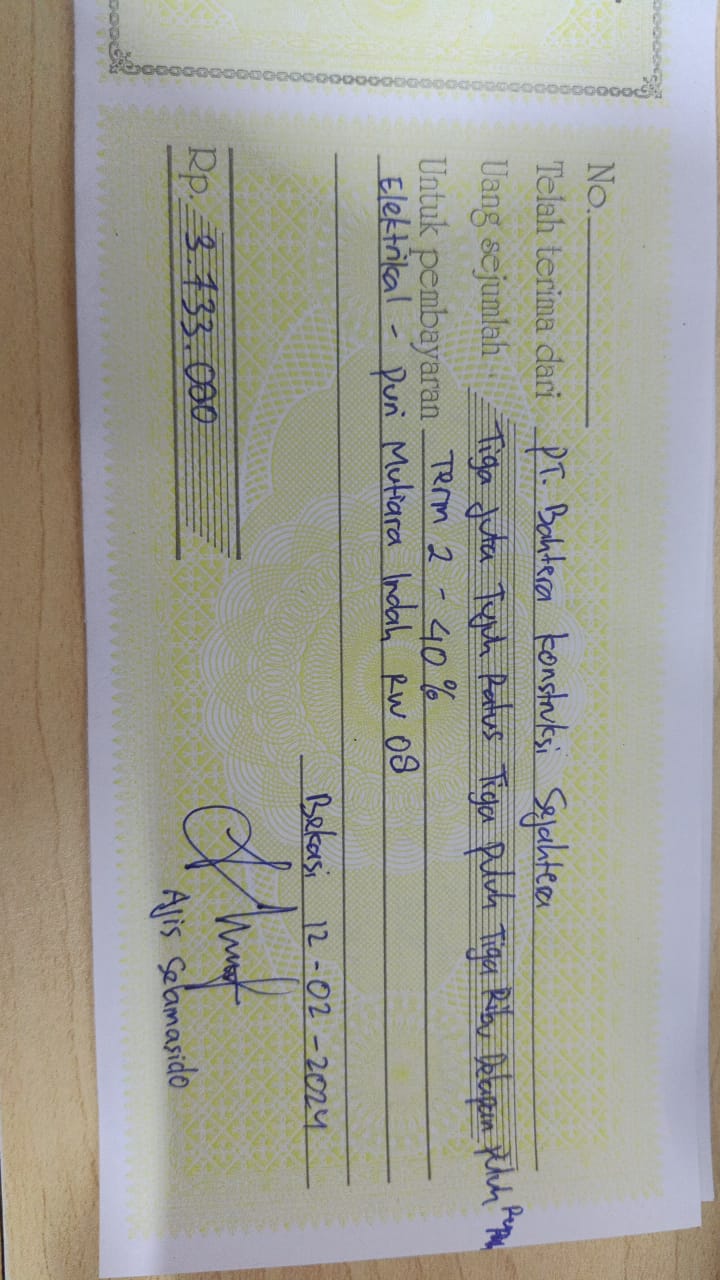 No.
Telah terima dari PT. Bahtera Konstruksi Sejahtera
Uang sejumlah Tiga Juta Tujuh Ratus Tiga Puluh Tiga Ribu Delapan Puluh
Untuk pembayaran Term 2 - 40%
Elektrikal - Puri Mutiara Indah RW 08
Bekasi 12 - 02 - 2024
Rp. 3.733.000
Ajis Selamasido